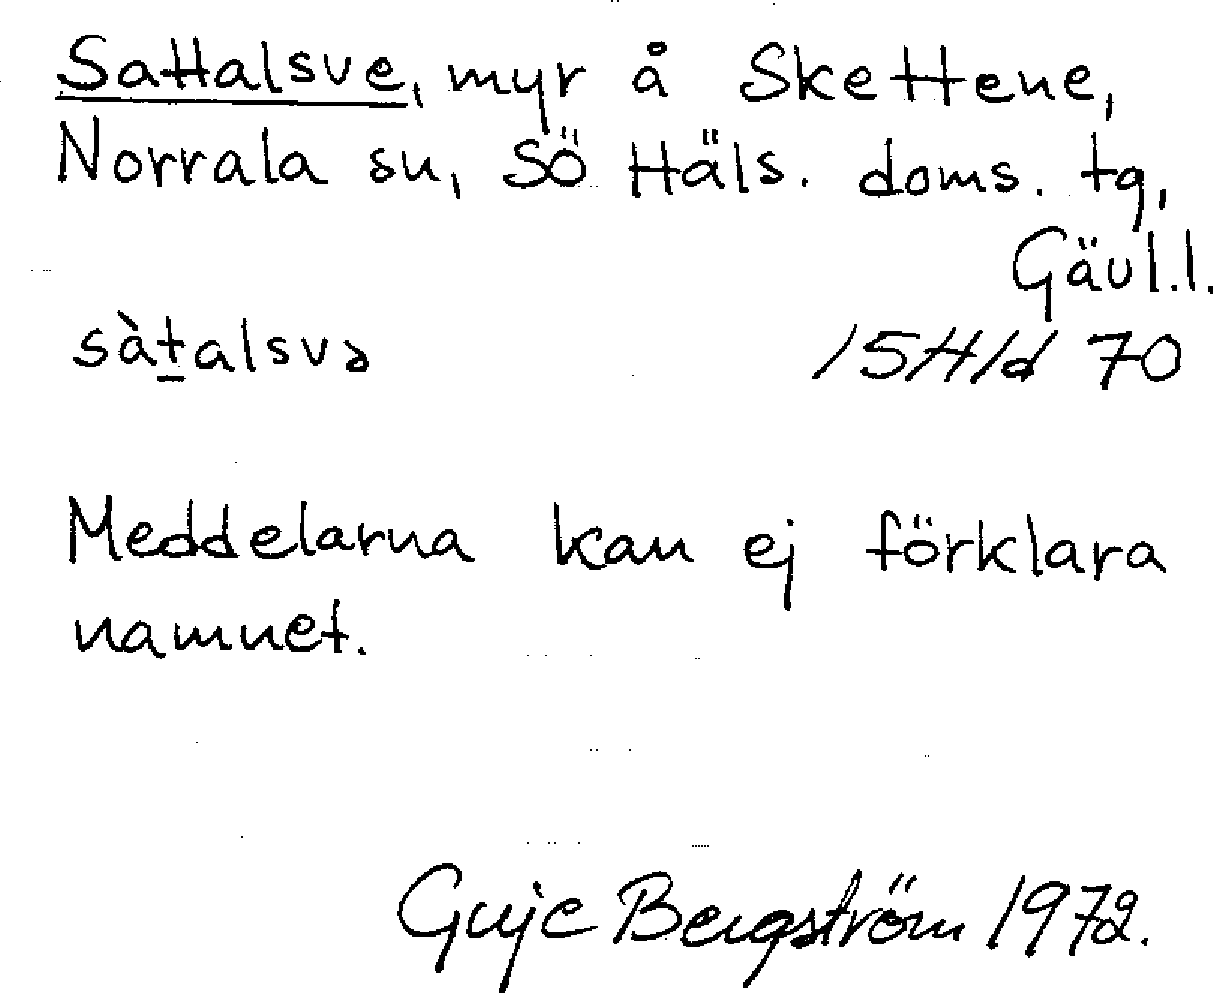 Sattalsve, myr å Skettene,
Norrala sn, Sö Häls. doms. tg,
Gävl.l.
sàt̲alsvə 15H1d 70
Meddelarna kan ej förklara
namnet.
Guje Bergström 1972.